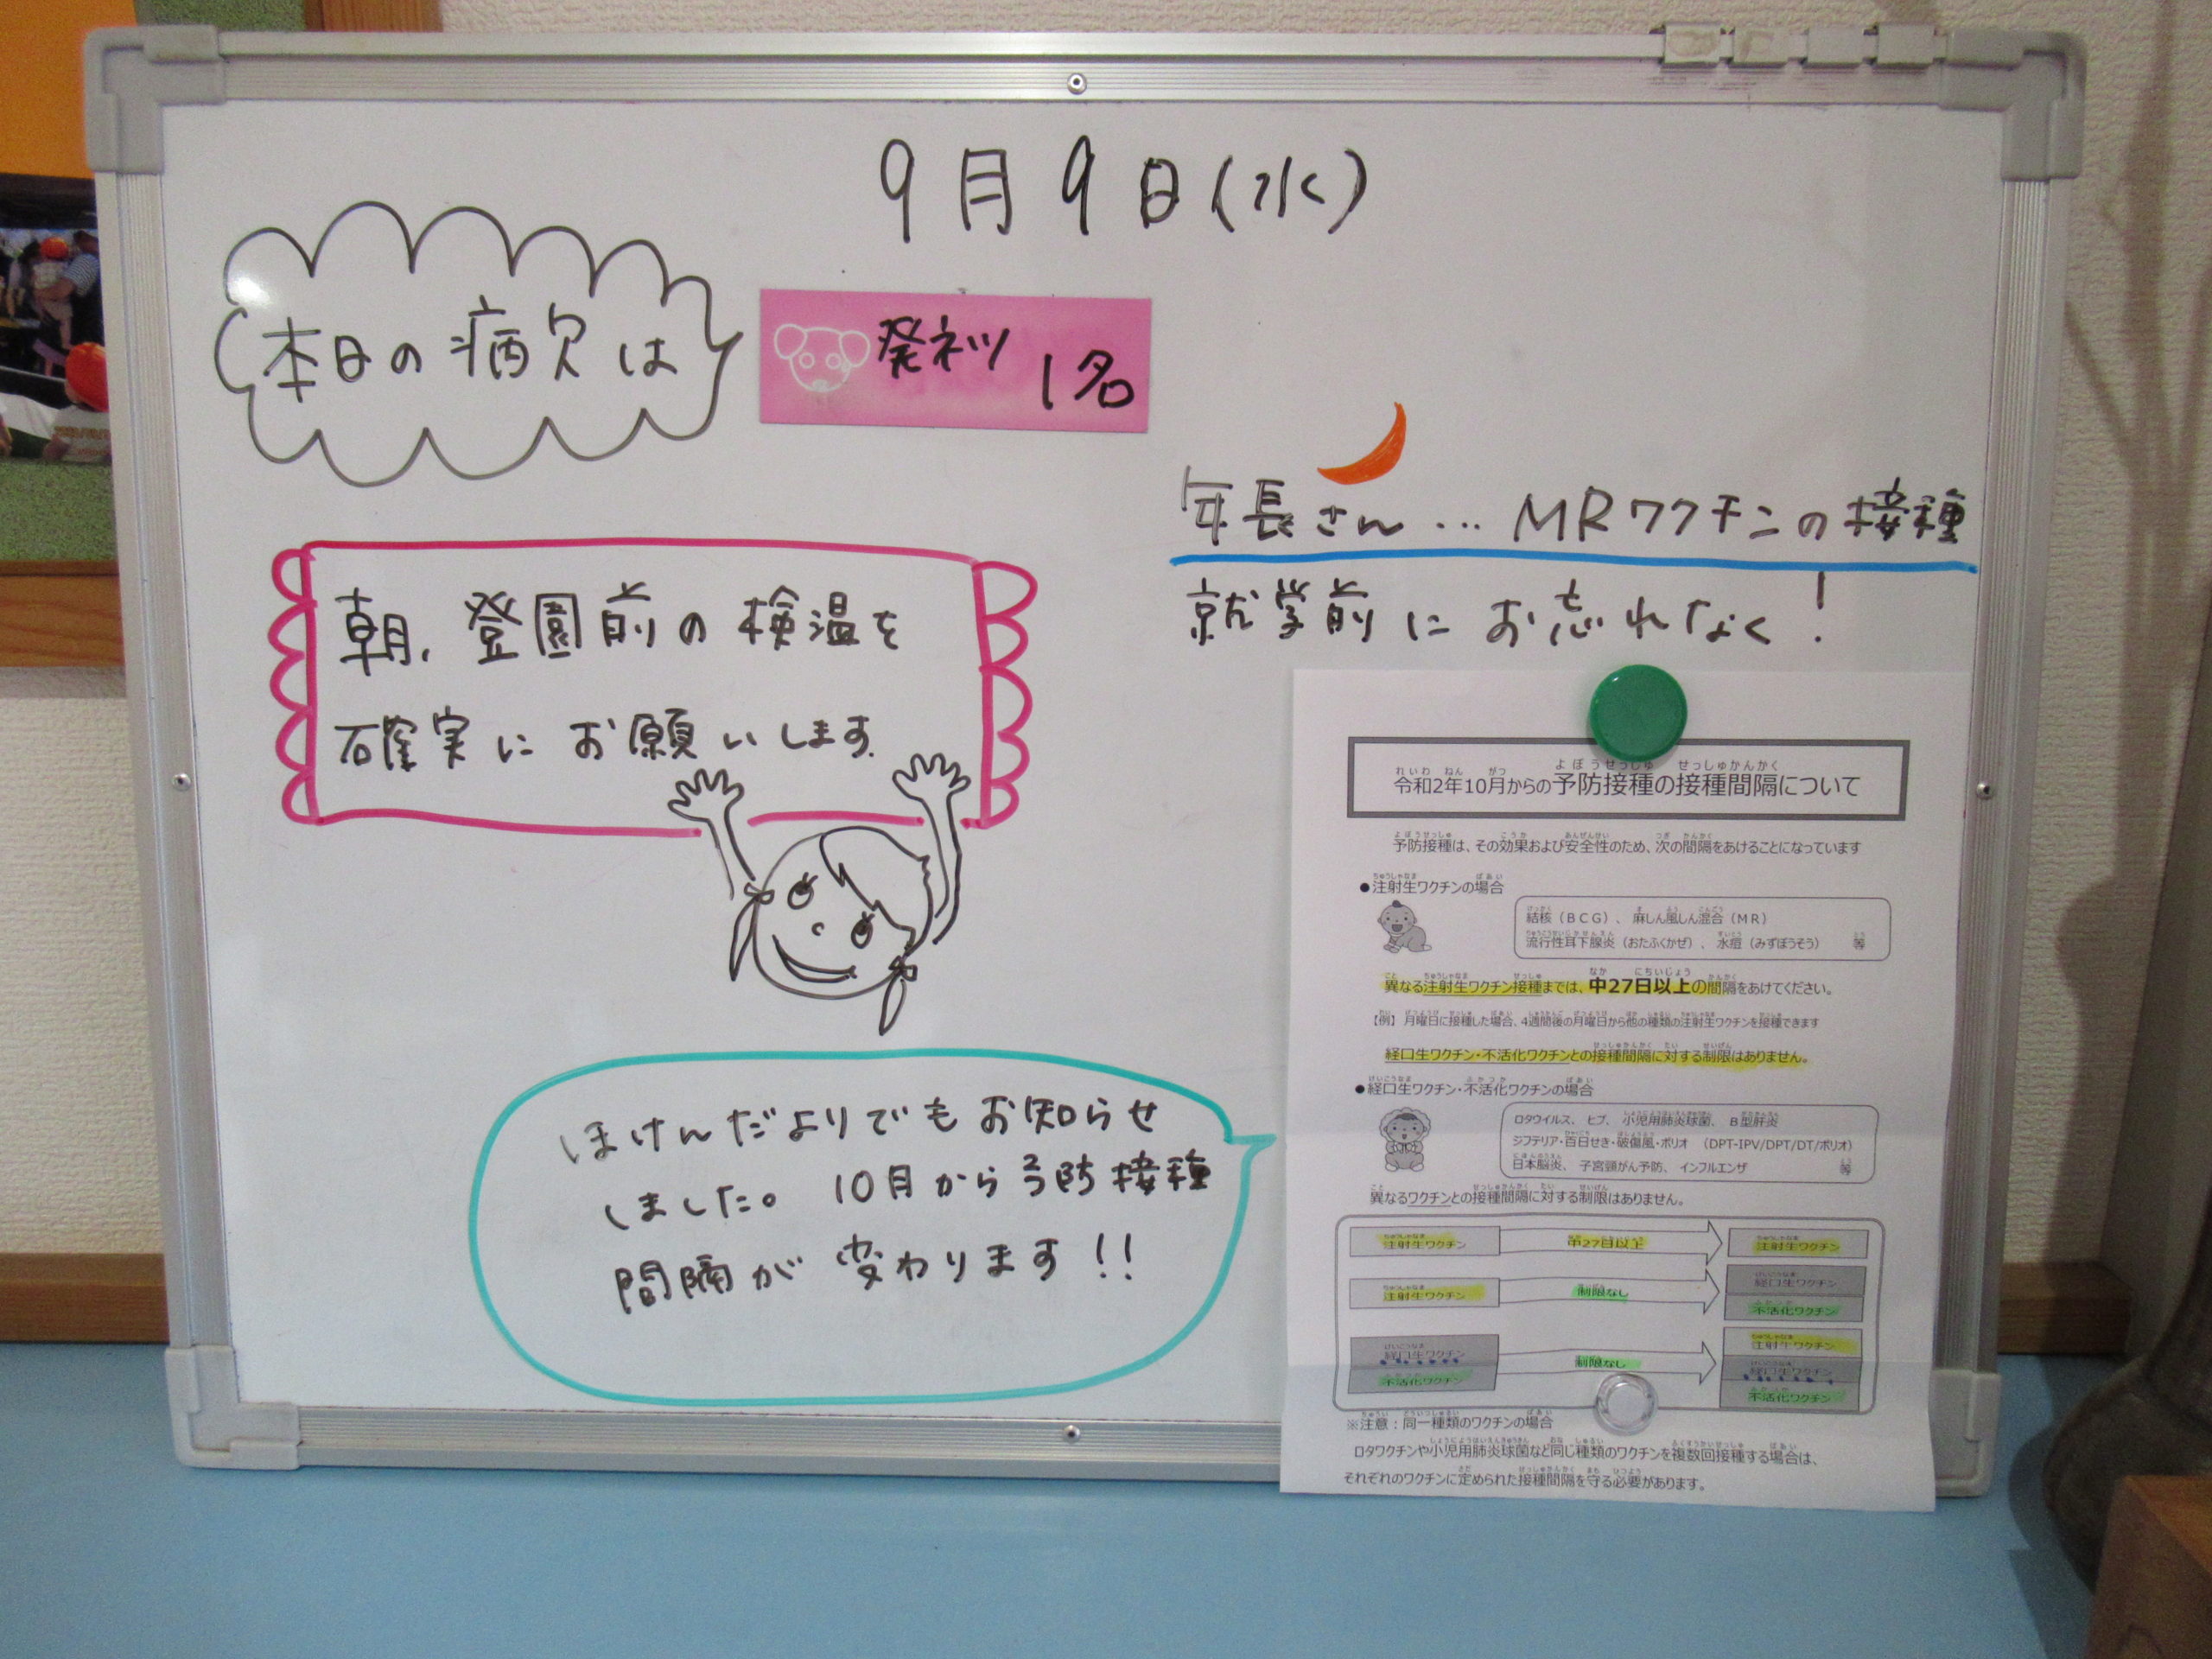 9月9日(水)
本日の病欠は
発ネツ 1名
年長さん…MRワクチンの接種
就学前にお忘れなく!
朝、登園前の検温を
確実にお願いします。
ほけんだよりでもお知らせ
しました。10月から予防接種
間隔が変わります!!
令和2年10月からの予防接種の接種間隔について
予防接種は、その効果および安全性のため、次の間隔をあけることになっています
●注射生ワクチンの場合
結核(BCG)、麻しん風しん混合(MR)
流行性耳下腺炎(おたふくかぜ)、水痘(みずぼうそう) 等
異なる注射生ワクチン接種までは、中27日以上の間隔をあけてください。
【例】月曜日に接種した場合、4週間後の月曜日から他の種類の注射生ワクチンを接種できます
経口生ワクチン・不活化ワクチンとの接種間隔に対する制限はありません。
●経口生ワクチン・不活化ワクチンの場合
ロタウイルス、ヒブ、小児用肺炎球菌、B型肝炎
ジフテリア・百日せき・破傷風・ポリオ (DPT-IPV/DPT/DT/ポリオ)
日本脳炎、子宮頸がん予防、インフルエンザ 等
異なるワクチンとの接種間隔に対する制限はありません。
注射生ワクチン 中27日以上 注射生ワクチン
注射生ワクチン 制限なし 経口生ワクチン
不活化ワクチン
注射生ワクチン
経口生ワクチン 制限なし 経口生ワクチン
不活化ワクチン 不活化ワクチン
※注意:同一種類のワクチンの場合
ロタワクチンや小児用肺炎球菌など同じ種類のワクチンを複数回接種する場合は、
それぞれのワクチンに定められた接種間隔を守る必要があります。